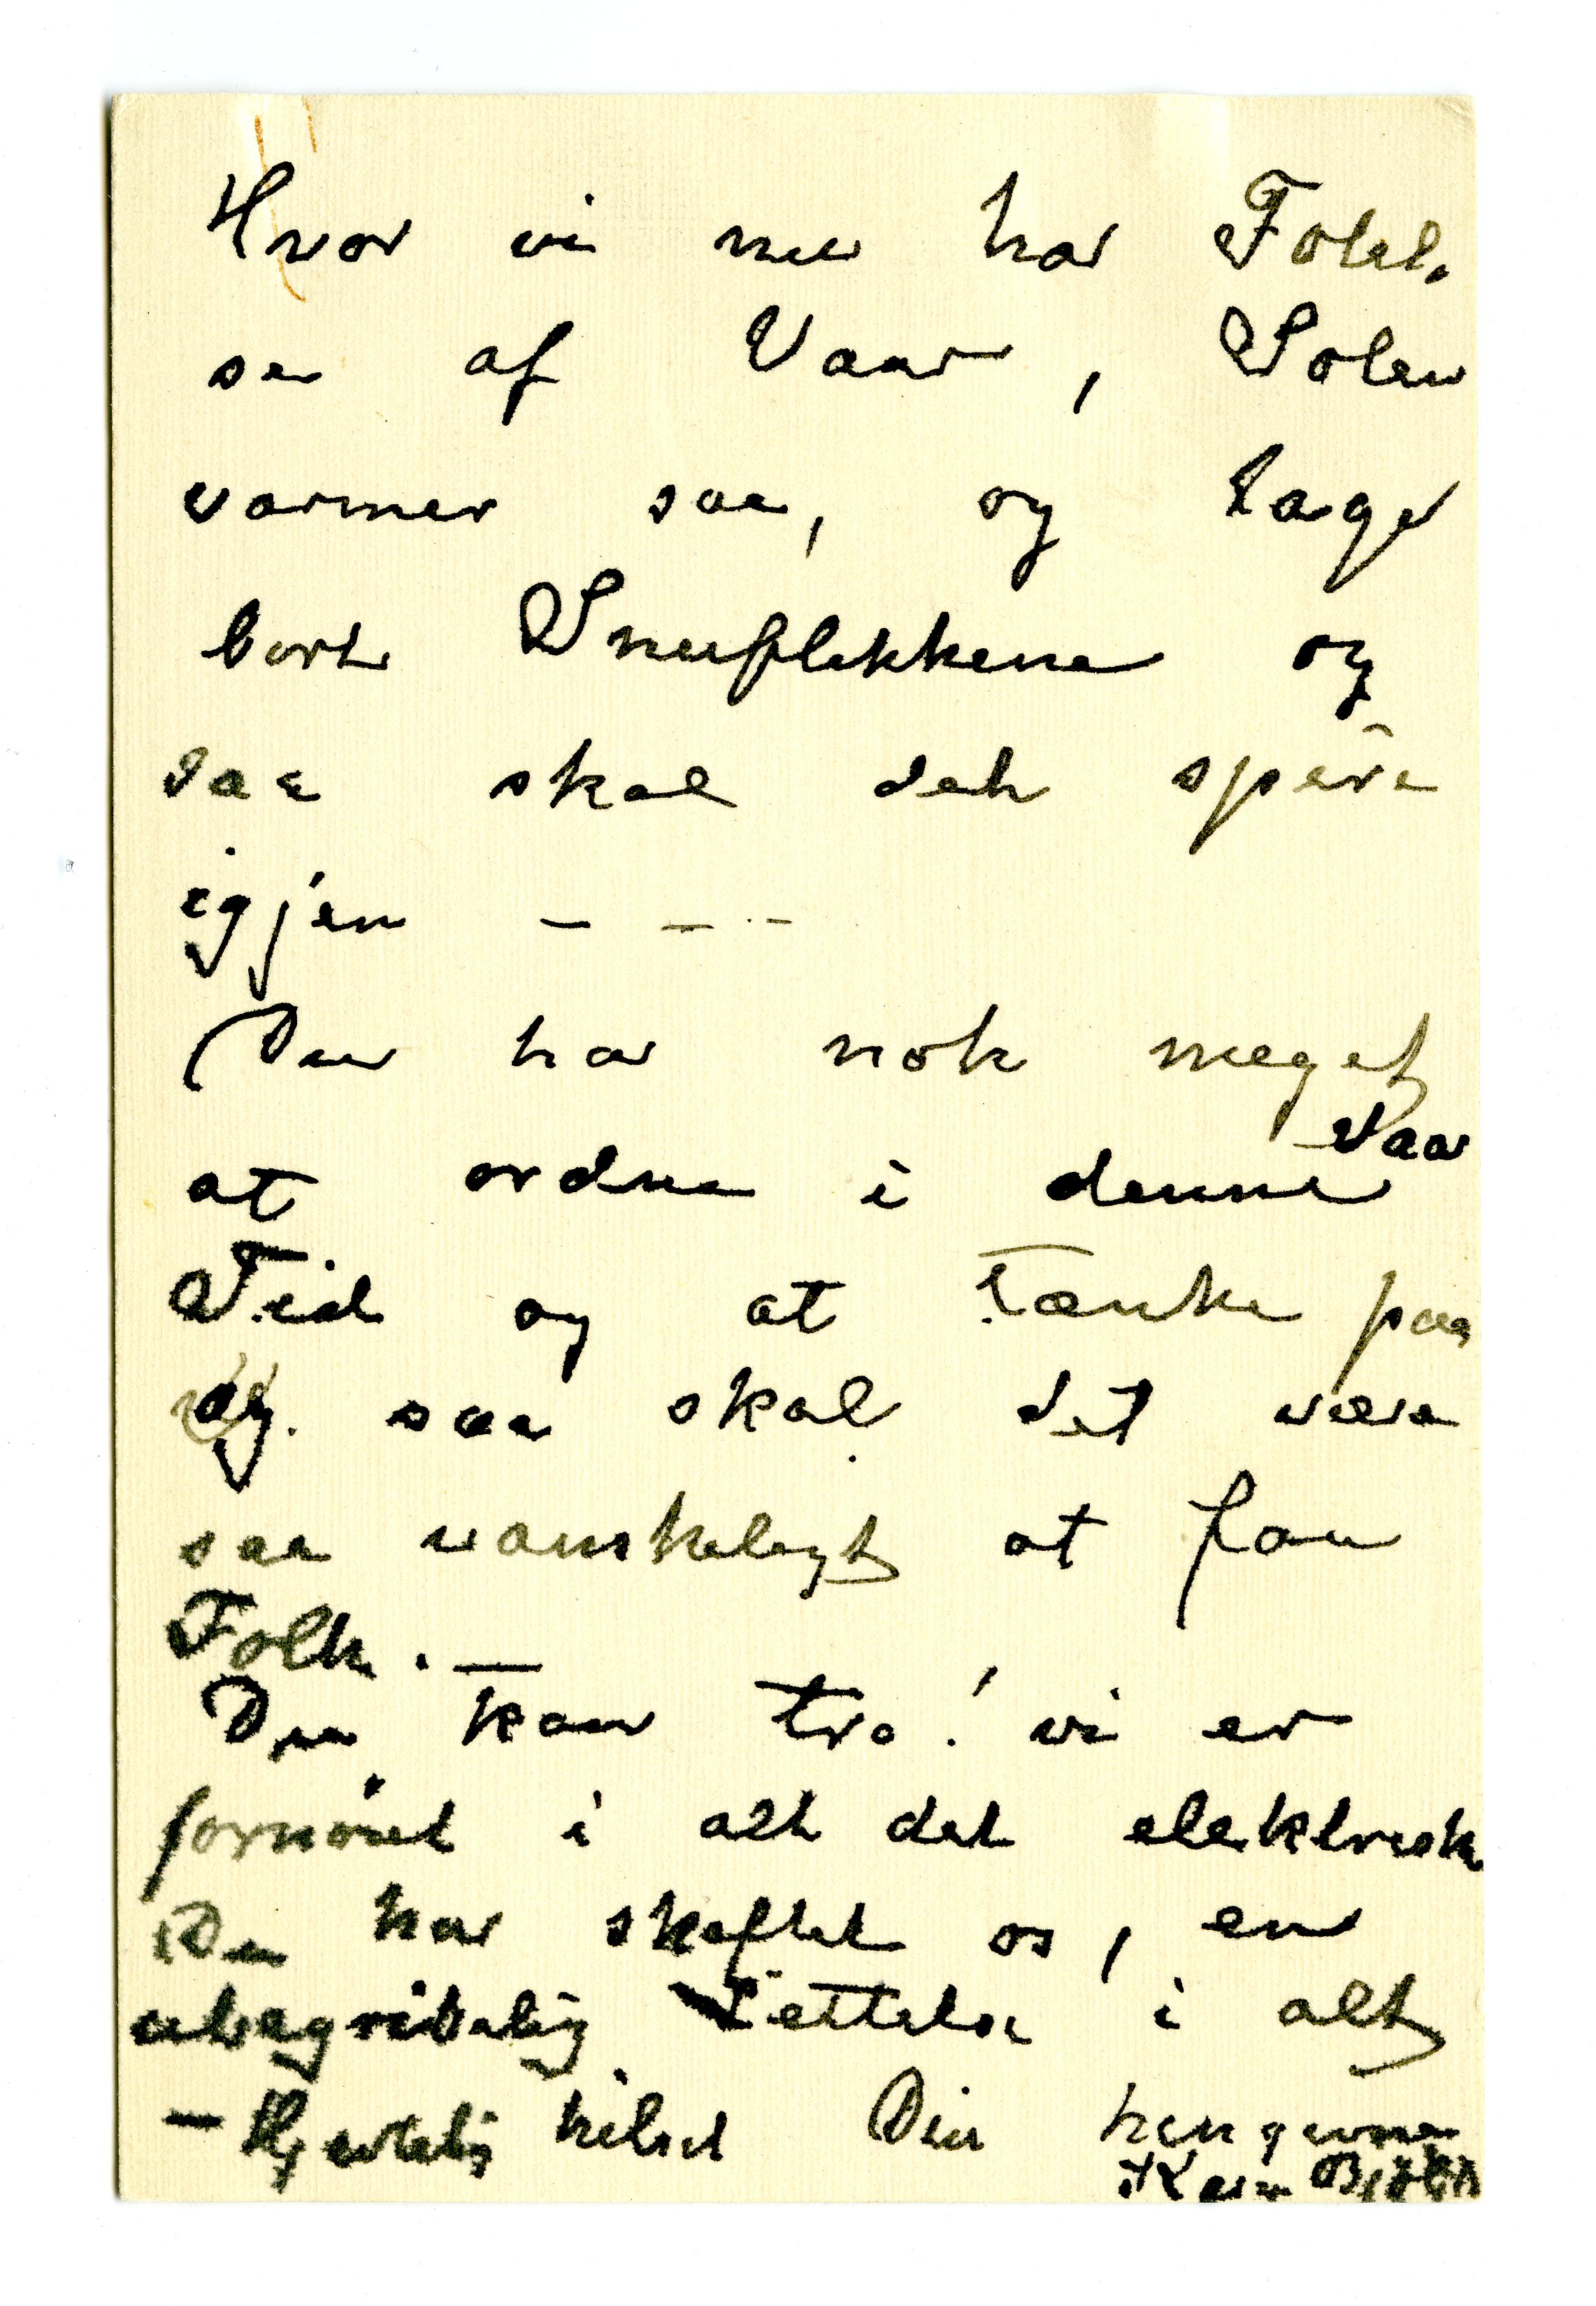 Hvor vi nu har Følel-
se af Vaar, Solen
varmer saa, og tager
bort Sneeflekkene og
saa skal det spire
igjen — — -
Du har nok meget
at ordne i denne Vaar
Tid og at tænke paa
og. saa skal det være
saa vanskeligt at faa
Folk. —
Du kan tro! vi er
fornøiet i alt det elektrisk
Du har skaffet os, en
ubegribelig Lettelse i alt
— Hjertelig hilset Din hengivne